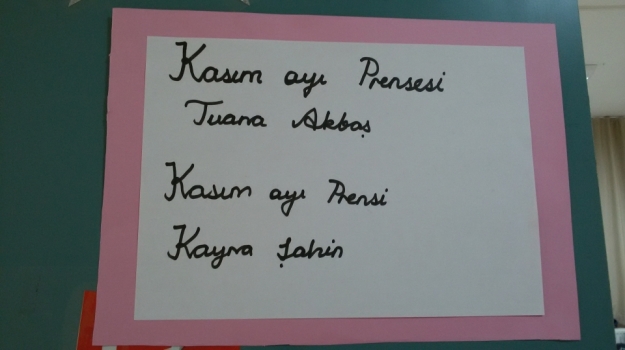 Kasım ayı Prensesi
Tuana Akbaş
Kasım ayı Prensi
Kayra Şahin